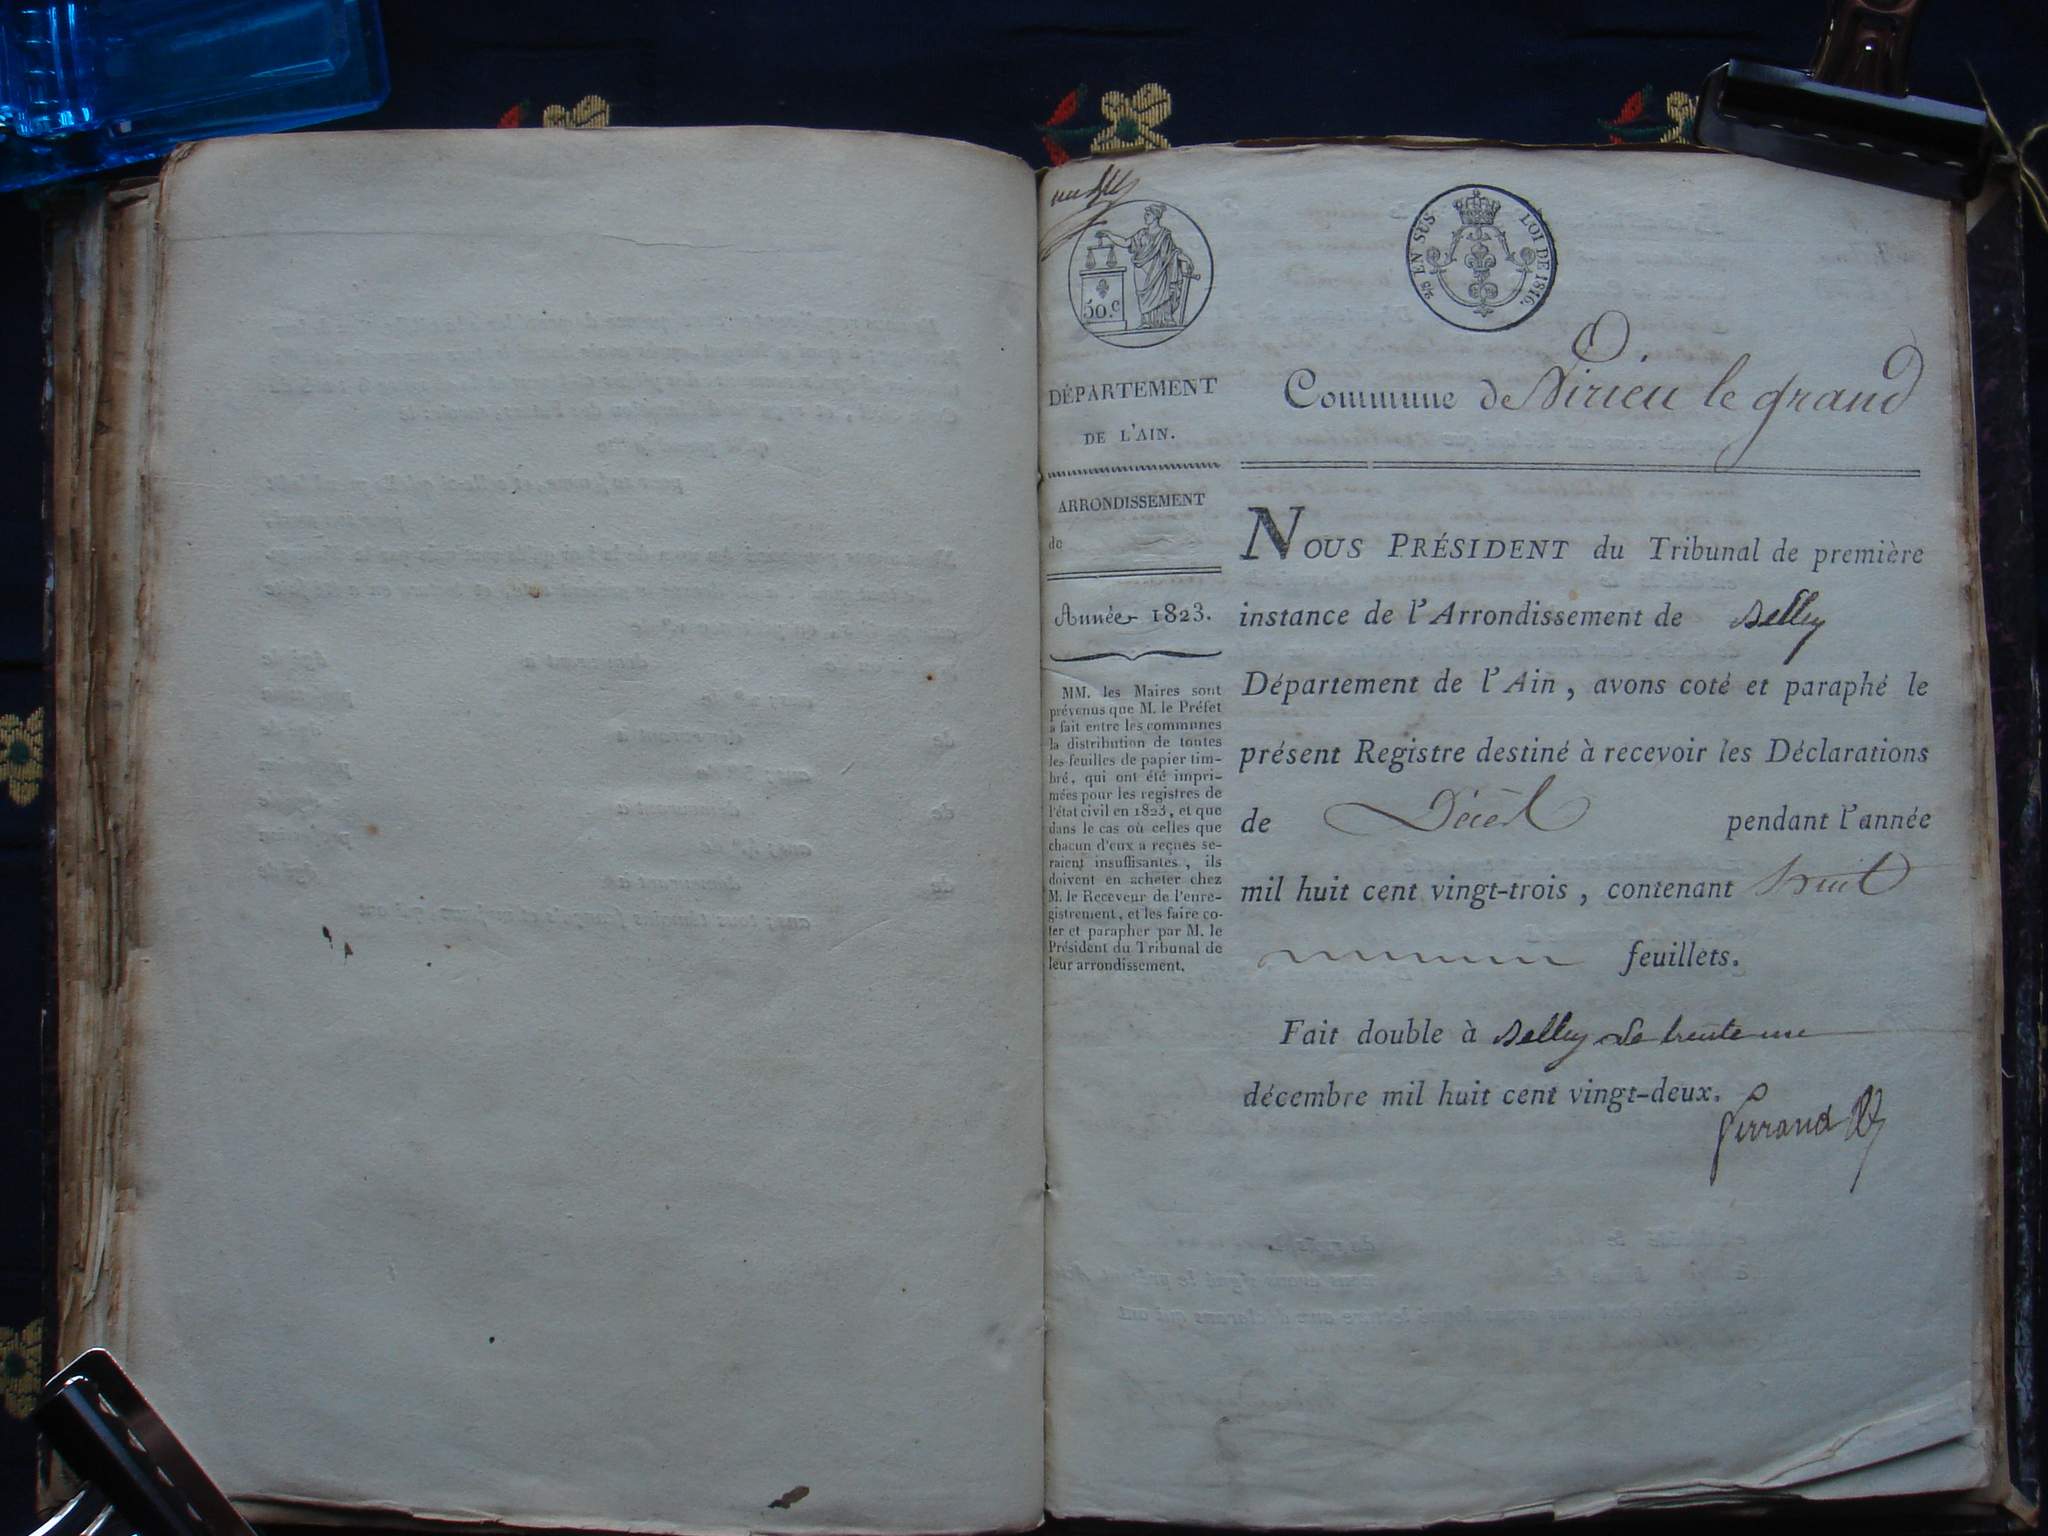 50.c
EN SUS
LOI DE 1816.
DÉPARTEMENT
DE L'AIN.
ARRONDISSEMENT
de
Année 1823.
MM. les Maires sont
prévenus que M. le Préfet
a fait entre les communes
la distribution de toutes
les feuilles de papier tim-
bré, qui ont été impri-
mées pour les registres de
l'état civil en 1823, et que
dans le cas où celles que
chacun d'eux a reçues se-
raient insuffisantes, ils
doivent en acheter chez
M. le Receveur de l'enre-
gistrement, et les faire co-
ter et parapher par M. le
Président du Tribunal de
leur arrondissement.
Commune de Virieu le grand
NOUS PRÉSIDENT du Tribunal de première
instance de l'Arrondissement de Belley
Département de l'Ain, avons coté et paraphé le
présent Registre destiné à recevoir les Déclarations
de Décès pendant l'année
mil huit cent vingt-trois, contenant huit
feuillets.
Fait double à Belley le trente un
décembre mil huit cent vingt-deux.